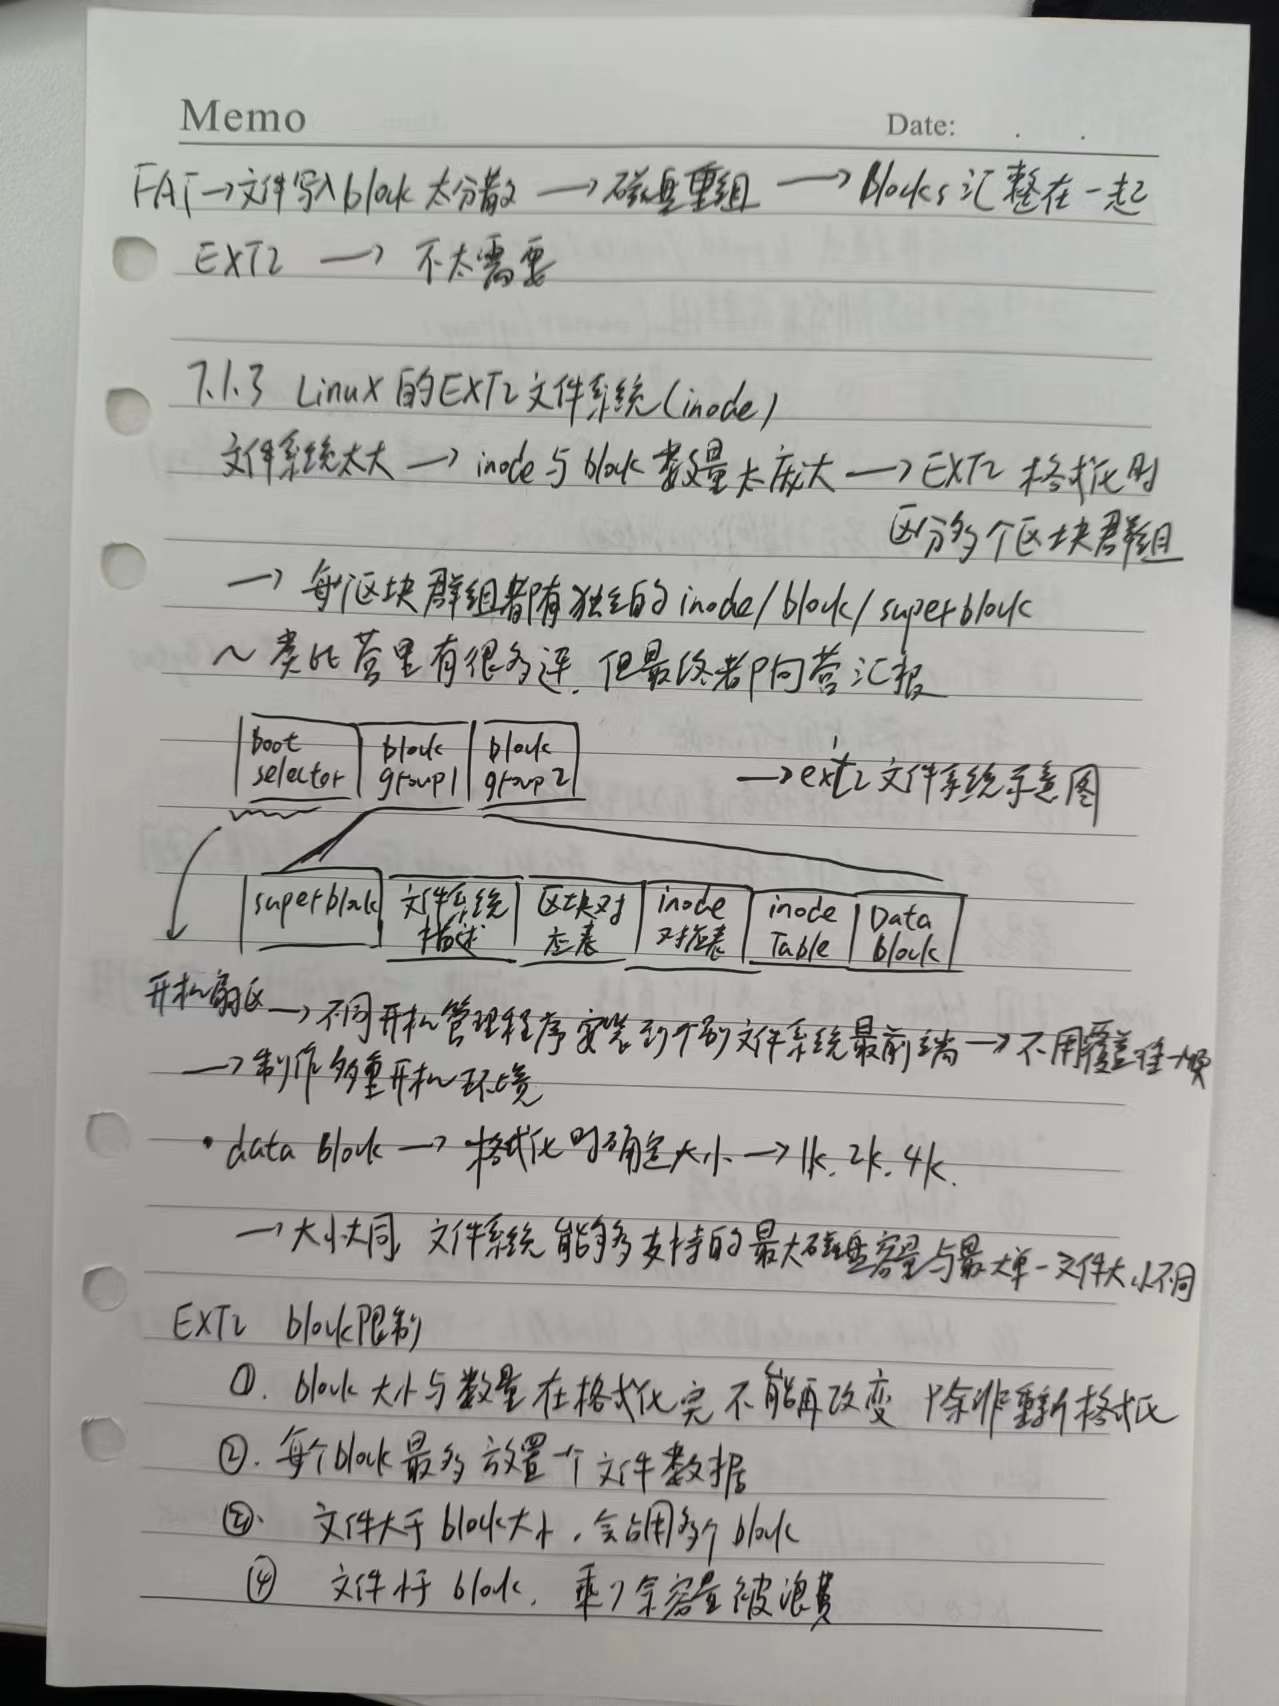 Memo
Date: . .
FAT→文件写入block太分散→磁盘重组→Blocks汇整在一起
EXT2→不太需要
7.1.3 Linux的EXT2文件系统(inode)
文件系统太大→inode与block数量太庞大→EXT2格式化时
区分多个区块群组
→每个区块群组都有独立的inode/block/superblock
~类比营里有很多连,但最终都向营汇报
boot selector
block group1
block group2
→ext2文件系统示意图
superblock
文件系统描述
区块对应表
inode对应表
inode Table
Data block
开机扇区→不同开机管理程序安装到个别文件系统最前端→不用覆盖唯一
→制作多重开机环境
·data block→格式化时确定大小→1k.2k.4k.
→大小不同,文件系统能够支持的最大磁盘容量与最大单一文件大小不同
EXT2 block限制
①.block大小与数量在格式化完不能再改变 除非重新格式化
②.每个block最多放置一个文件数据
③.文件大于block大小,会占用多个block
④ 文件小于block.剩余容量被浪费